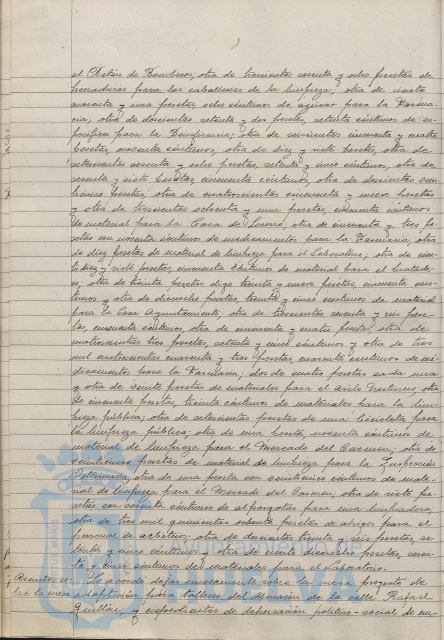 el Retén de Bomberos, otra de trescientas sesenta y ocho pesetas de
herraduras para las caballerías de la limpieza; otra de ciento
cuarenta y una pesetas, ocho céntimos de azúcar para la Farma
cia; otra de doscientas setenta y dos pesetas, setenta céntimos de es-
pecíficos para la Beneficencia; otra de seiscientas cincuenta y cuatro
pesetas, noventa céntimos, otra de diez y siete pesetas, otra de
setecientas sesenta y ocho pesetas, setenta y cinco céntimos, otra de
sesenta y siete pesetas, cincuenta céntimos, otra de doscientas
pesetas, otra de cuatrocientas cincuenta y nueve pesetas
y otra de trescientas ochenta y una pesetas, cincuenta céntimos
de material para la Casa de Socorro, otra de cincuenta y tres pe-
setas con noventa céntimos de medicamentos para la Farmacia, otra
de diez pesetas de material de limpieza para el Laboratorio; otra de cien-
to diez y siete pesetas, cincuenta céntimos de material para el Matade-
ro; otra de treinta pesetas digo treinta y nueve pesetas, cincuenta cén-
timos y otra de dieciocho pesetas, treinta y cinco céntimos de material
para la Casa Ayuntamiento; otra de trescientas sesenta y seis pese-
tas, cincuenta céntimos, otra de cincuenta y cuatro pesetas, otra de
cuatrocientas tres pesetas, setenta y cinco céntimos y otra de tres
mil cuatrocientas cuarenta y tres pesetas, cuarenta céntimos de me-
dicamentos para la Farmacia; dos de cuatro pesetas cada una
y otra de veinte pesetas de materiales para el Asilo Nocturno, otra
de cincuenta pesetas, treinta céntimos de materiales para la lim-
pieza pública; otra de setecientas pesetas de una Cicicleta para
la limpieza pública; otra de una peseta, noventa céntimos de
material de limpieza para el Mercado del Carmen; otra de
veinticinco pesetas de material de limpieza para la Inspección
Veterinaria, otra de una peseta con veinticinco céntimos de mate-
rial de limpieza para el Mercado del Carmen, otra de siete pe-
setas con sesenta céntimos de alpargatas para una limpiadora;
otra de tres mil quinientas ochenta pesetas de abrigos para el
personal de arbitrios; otra de doscientas treinta y seis pesetas, se-
tenta y cinco céntimos y otra de ciento dieciocho pesetas, sesen-
ta y cinco céntimos de materiales para el Laboratorio.
Asuntos so-
bre la mesa
Se acordó dejar nuevamente sobre la mesa Proyecto de
adaptación para talleres del almacén de la calle Rafael
Guillén; y expedientes de depuración político-social de